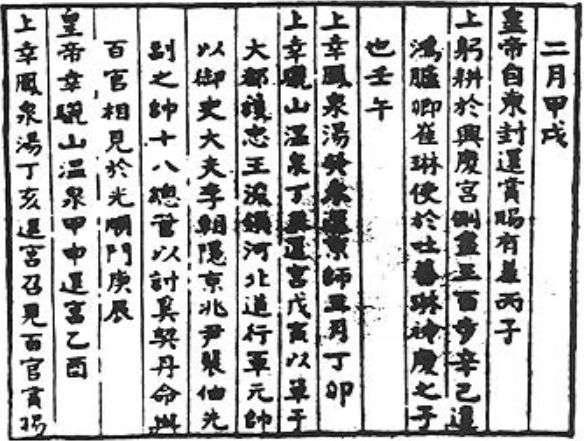 二月甲戌
皇帝自東封還賞賜有差丙子
上躬耕於興慶宮側盡三百步辛己遣
鴻臚卿崔琳使於吐蕃琳神慶之子
也壬午
上幸鳳泉湯癸未還京師五月丁卯
上幸驪山温泉丁丑還宮戊寅以單于
大都護忠王浚領河北道行軍元帥
以御史大夫李朝隱京兆尹裴伷先
副之帥十八總管以討奚契丹命與
百官相見於光順門庚辰
皇帝幸驪山温泉甲申還宮乙酉
上幸鳳泉湯丁亥還宮召見百官賞賜